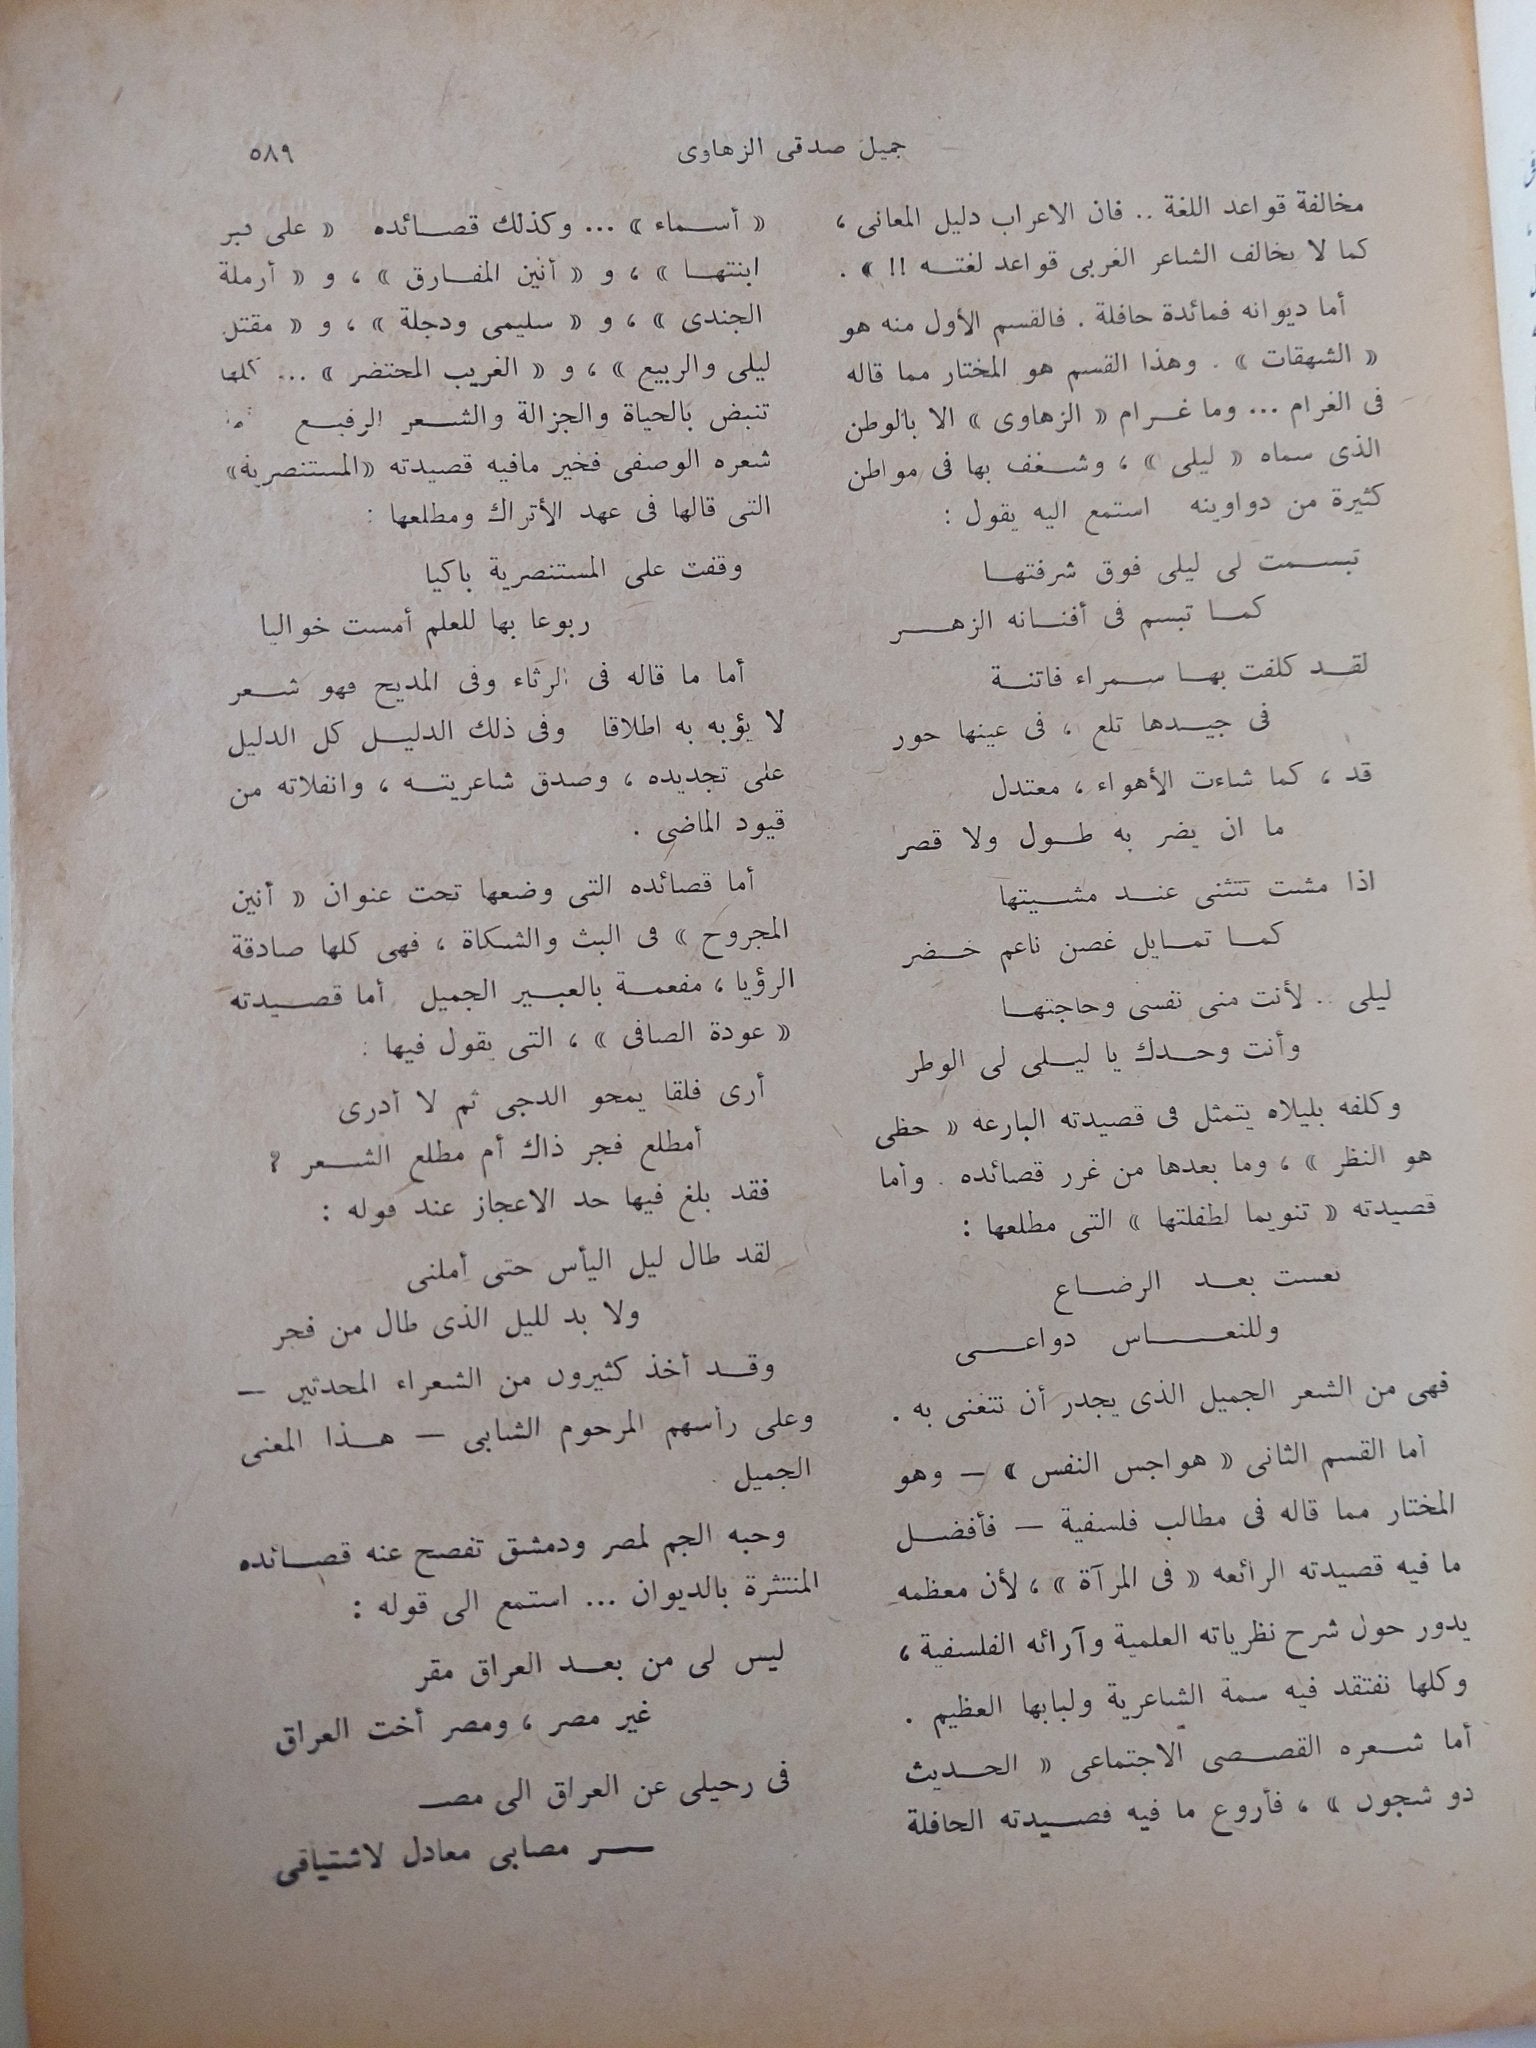 جميل صدقى الزهاوى
٥٨٩
مخالفة قواعد اللغة .. فان الاعراب دليل المعانى ،
كما لا يخالف الشاعر الغربى قواعد لغتــه !! » .
أما ديوانه فمائدة حافلة . فالقسم الأول منه هو
« الشهقات » . وهذا القسم هو المختار مما قاله
فى الغرام ... وما غــرام « الزهاوى » الا بالوطن
الذى سماه « ليلى » ، وشــغف بها فى مواطن
كثيرة من دواوينه استمع اليه يقول :
تبســمت لى ليلى فوق شرفتهــا
كمــا تبسم فى أفنــانه الزهــــر
لقــد كلفت بهــا ســمراء فاتنــة
فى جيــدها تلع ، فى عينها حور
قد ، كما شاءت الأهواء ، معتدل
ما ان يضر به طــول ولا قصر
اذا مشت تتثنى عنــد مشــيتها
كمــا تمــايل غصن ناعم خــضر
ليلى .. لأنت منى نفسى وحاجتهــا
وأنت وحــدك يا ليــلى لى الوطر
وكلفه بليلاه يتمثل فى قصيدته البارعه « حظى
هو النظر » ، وما بعدها من غرر قصائده . وأما
قصيدته « تنويما لطفلتها » التى مطلعها :
نعست بعــد الرضــاع
وللنعــــاس دواعــــى
فهى من الشعر الجميل الذى يجدر أن نتغنى به .
أما القسم الثانى « هواجس النفس » — وهو
المختار مما قاله فى مطالب فلسفية — فأفضــل
ما فيه قصيدته الرائعه « فى المرآة » ، لأن معظمه
يدور حول شرح نظرياته العلمية وآرائه الفلسفية ،
وكلها نفتقد فيه سمة الشاعرية ولبابها العظيم .
أما شــعره القصــصى الاجتماعى « الحــديث
ذو شجون » ، فأروع ما فيه قصــيدته الحافلة
« أســماء » ... وكذلك قصــائده « على قبر
ابنتهــا » ، و « أنين المفــارق » ، و « أرملة
الجندى » ، و « سليمى ودجلة » ، و « مقتل
ليلى والربيع » ، و « الغريب المحتضر » ... كلها
تنبض بالحياة والجزالة والشــعر الرفيــع
شعره الوصفى فخير مافيه قصيدته «المستنصرية»
التى قالها فى عهد الأتراك ومطلعها :
وقفت على المستنصرية باكيا
ربوعا بها للعلم أمست خواليا
أما ما قاله فى الرثاء وفى المديح فهو شــعر
لا يؤبه به اطلاقا وفى ذلك الدليــل كل الدليل
على تجديده ، وصدق شاعريتــه ، وانفلاته من
قيود الماضى .
أما قصائده التى وضعها تحت عنوان « أنين
المجروح » فى البث والشكاة ، فهى كلها صادقة
الرؤيا ، مفعمــة بالعبــير الجميل أما قصــيدته
« عودة الصافى » ، التى يقول فيها :
أرى فلقا يمحو الدجى ثم لا أدرى
أمطلع فجر ذاك أم مطلع الشــعر ؟
فقد بلغ فيها حد الاعجاز عند قوله :
لقد طال ليل اليأس حتى أملنى
ولا بد لليل الذى طال من فجر
وقــد أخذ كثيرون من الشعراء المحدثين —
وعلى رأسهم المرحوم الشابى — هــذا المعنى
الجميل .
وحبه الجم لمصر ودمشق تفصح عنه قصــائده
المنتثرة بالديوان ... استمع الى قوله :
ليس لى من بعــد العراق مقر
غير مصر ، ومصر أخت العراق
فى رحيلى عن العراق الى مصــ
ــــر مصابى معادل لاشتياقى